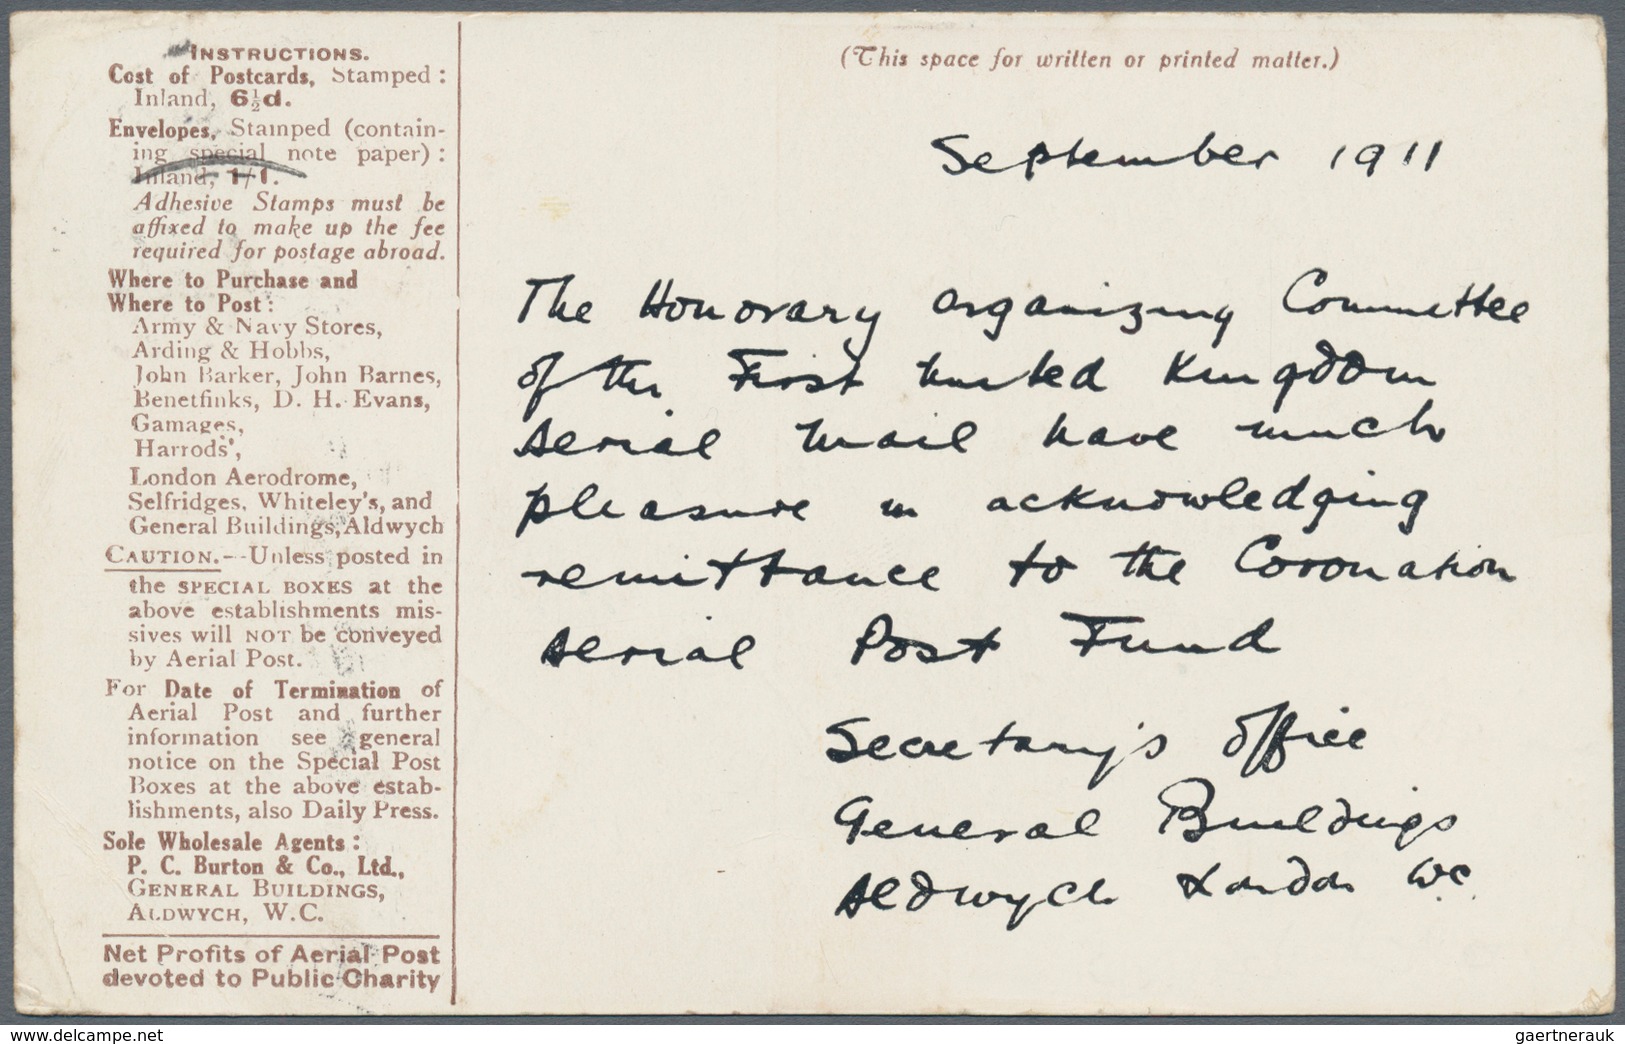 INSTRUCTIONS.
Cost of Postcards, Stamped :
Inland, 6½d.
Envelopes, Stamped (contain-
ing special note paper) :
Inland, 1/1.
Adhesive Stamps must be
affixed to make up the fee
required for postage abroad.
Where to Purchase and
Where to Post :
Army & Navy Stores,
Arding & Hobbs,
John Barker, John Barnes,
Benetfinks, D. H. Evans,
Gamages,
Harrods',
London Aerodrome,
Selfridges, Whiteley's, and
General Buildings, Aldwych
CAUTION.—Unless posted in
the SPECIAL BOXES at the
above establishments mis-
sives will NOT be conveyed
by Aerial Post.
For Date of Termination of
Aerial Post and further
information see general
notice on the Special Post
Boxes at the above estab-
lishments, also Daily Press.
Sole Wholesale Agents :
P. C. Burton & Co., Ltd.,
GENERAL BUILDINGS,
ALDWYCH, W.C.
Net Profits of Aerial Post
devoted to Public Charity
(This space for written or printed matter.)
September 1911
The Honorary organizing Committee
of the First United Kingdom
Aerial Mail have much
pleasure in acknowledging
remittance to the Coronation
Aerial Post Fund
Secretary's Office
General Buildings
Aldwych London WC
delcampe.net
gaertnerauk